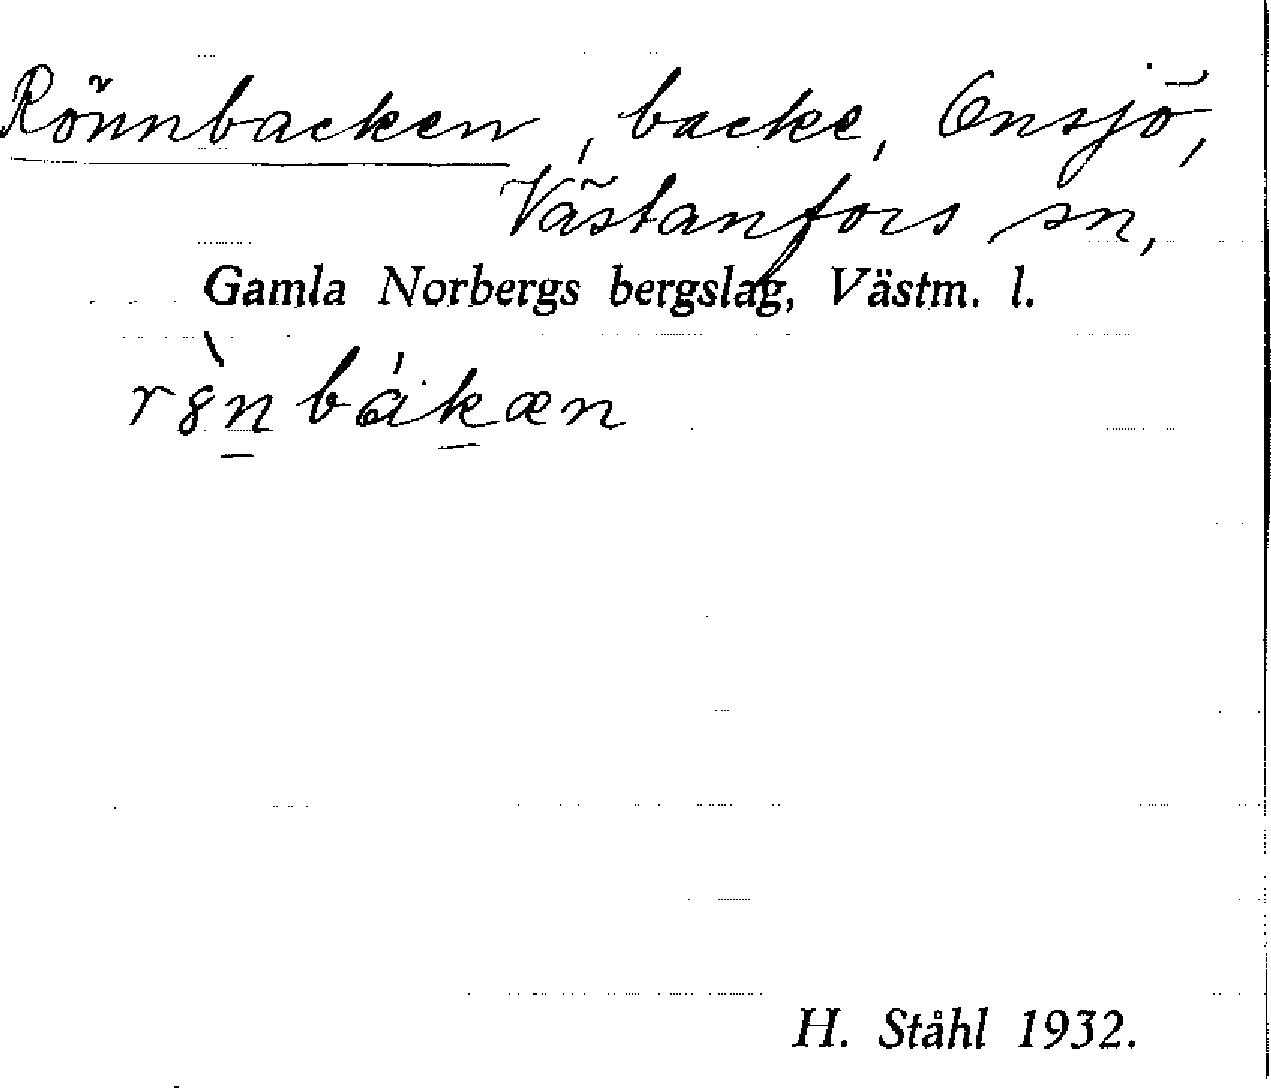 Rönnbacken, backe, Onsjö,
Västanfors sn,
Gamla Norbergs bergslag, Västm. l.
r8̀n bákæn
H. Ståhl 1932.